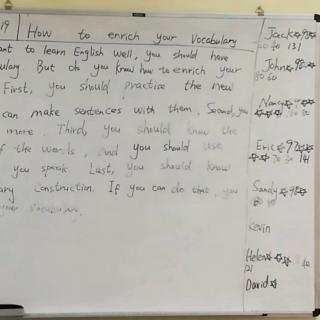 19 How to enrich your Vocabulary
ant to learn English well, you should have
ulary. But do you know how to enrich your
First, you should practise the new
can make sentences with them. Second, you
more. Third, you should know the
f the words, and you should use
you speak. Last, you should know
ary Construction. If you can do that, you
your vocabulary.
Jack
131
John
80 60
Nancy
Eric
141
Sandy
Kevin
Helen
121
David